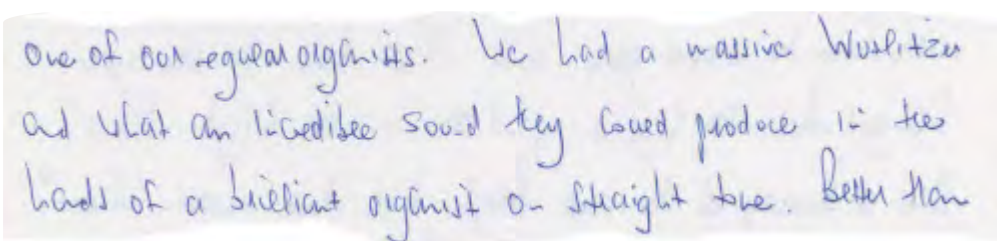 one of our regular organists. We had a massive Wurlitzer
and what an incredible sound they could produce in the
hands of a brilliant organist on straight tone. Better than